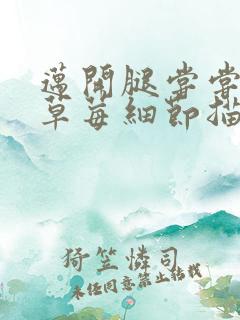 邁開腿嘗嘗
草莓細節描
猗笠憐司
未经同意禁止转载